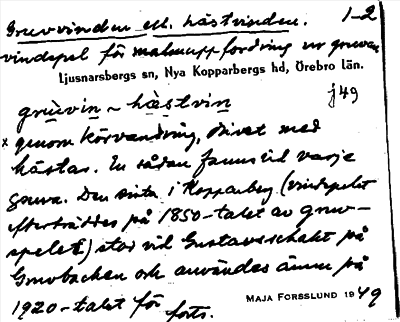 Gruvvinden ell. hästvinden. 1-2
vindspel för malmuppfordring ur gruvan
Ljusnarsbergs sn, Nya Kopparbergs hd, Örebro län.
gruvin ~ hästvin j49
x genom körvandring, drivet med
hästar. En sådan fanns vid varje
gruva. Den sista i Kopparberg (vindspelet
efterträddes på 1850-talet av gruv-
spelet) stod vid Gustavsschakt på
Gruvbacken och användes ännu på
1920-talet för forts.
MAJA FORSSLUND 1949